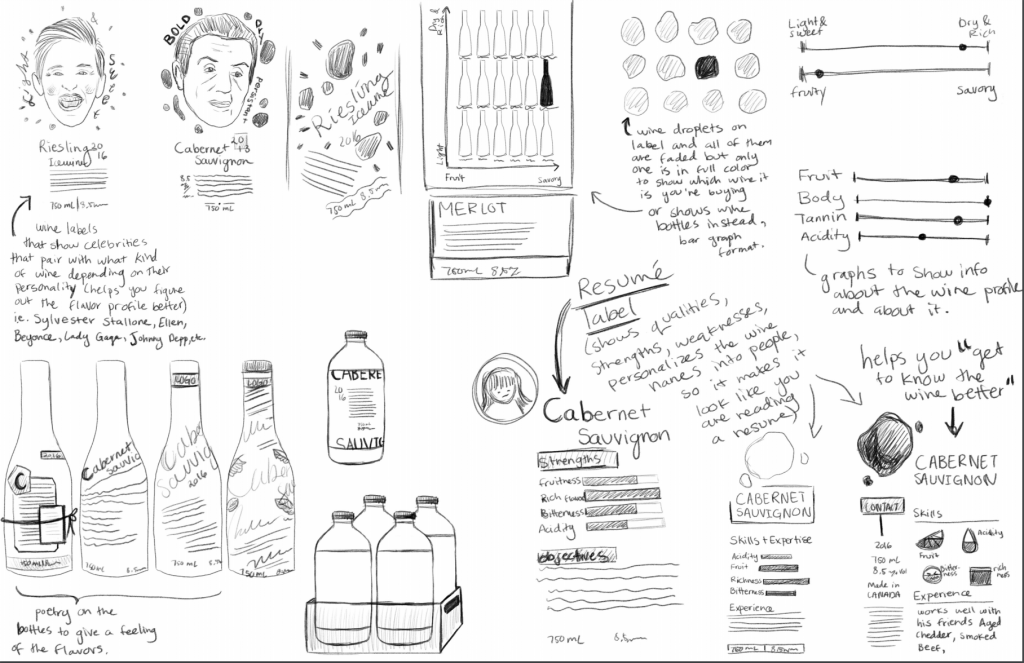 Riesling 20
Icewine 16
750 mL/8.5%
wine labels
that show celebrities
that pair with what kind
of wine depending on their
personality (helps you figure
out the flavor profile better)
ie. Sylvester Stallone, Ellen,
Beyonce, Lady Gaga, Johnny Depp, etc.
BOLD
DRY
Persistent
Cabernet 20
Sauvignon
8.5
750 mL
Riesling
Icewine
2016
750 mL 8.5%
Dry & Rich
Light
Fruit
Savory
MERLOT
750mL 8.5%
wine droplets on
label and all of them
are faded but only
one is in full color
to show which wine it
is you're buying
or shows wine
bottles instead,
bar graph
format.
Light &
sweet
Dry &
Rich
fruity
Savory
Fruit
Body
Tannin
Acidity
graphs to show info
about the wine profile
and about it.
Resumé
label
(shows qualities,
strengths, weaknesses,
personalizes the wine
names into people,
so it makes it
look like you
are reading
a resume)
helps you "get
to know the
wine better"
C
2016
750mL
Cabernet
Sauvig
750 mL 8.5%
LOGO
Caber
Sauvig
2016
750 mL 8.5%
LOGO
Caber
750 mL
poetry on the
bottles to give a feeling
of the flavors.
CABERE
20
16
SAUVIG
Cabernet
Sauvignon
Strengths
Fruitness
Rich flavor
Bitterness
Acidity
Objectives
750 mL 8.5%
CABERNET
SAUVIGNON
Skills + Expertise
Acidity
Fruit
Richness
Bitterness
Experience
750 mL 8.5%
CABERNET
SAUVIGNON
CONTACT
2016
750 mL
8.5 % Vol
Made in
CANADA
Skills
Fruit
Acidity
Bitter-
ness
rich
ness
Experience
works well with
his friends Aged
Chedder, Smoked
Beef,